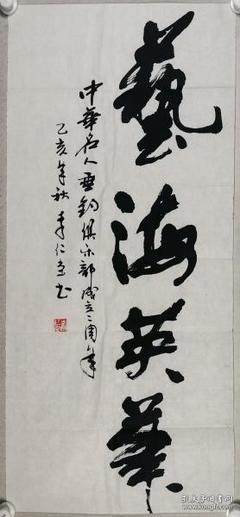 藝海英華
中華名人垂釣俱樂部成立二周年
乙亥年秋 李仁堂书